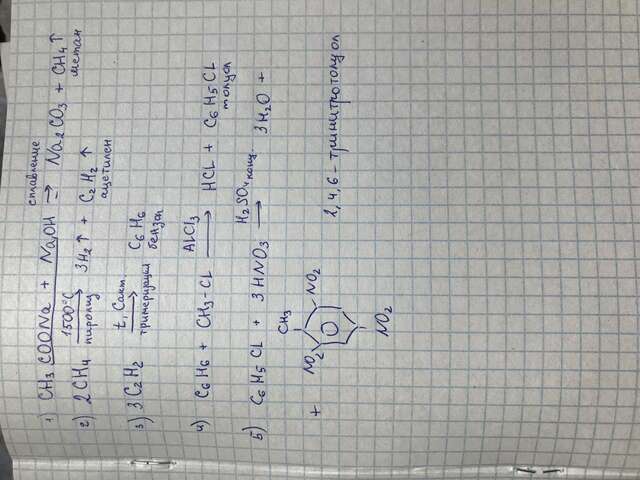 1) CH3 COONa + NaOH сплавление → Na2CO3 + CH4↑
метан
2) 2CH4 1500°C → пиролиз 3H2↑ + C2H2↑
ацетилен
3) 3C2H2 t, Cакт. → тримеризация C6H6
бензол
4) C6H6 + CH3-CL ALCl3 → HCL + C6H5CL
толуол
5) C6H5CL + 3HNO3 H2SO4 конц. → 3H2O +
CH3
+ NO2 NO2 2,4,6-тринитротолуол
NO2